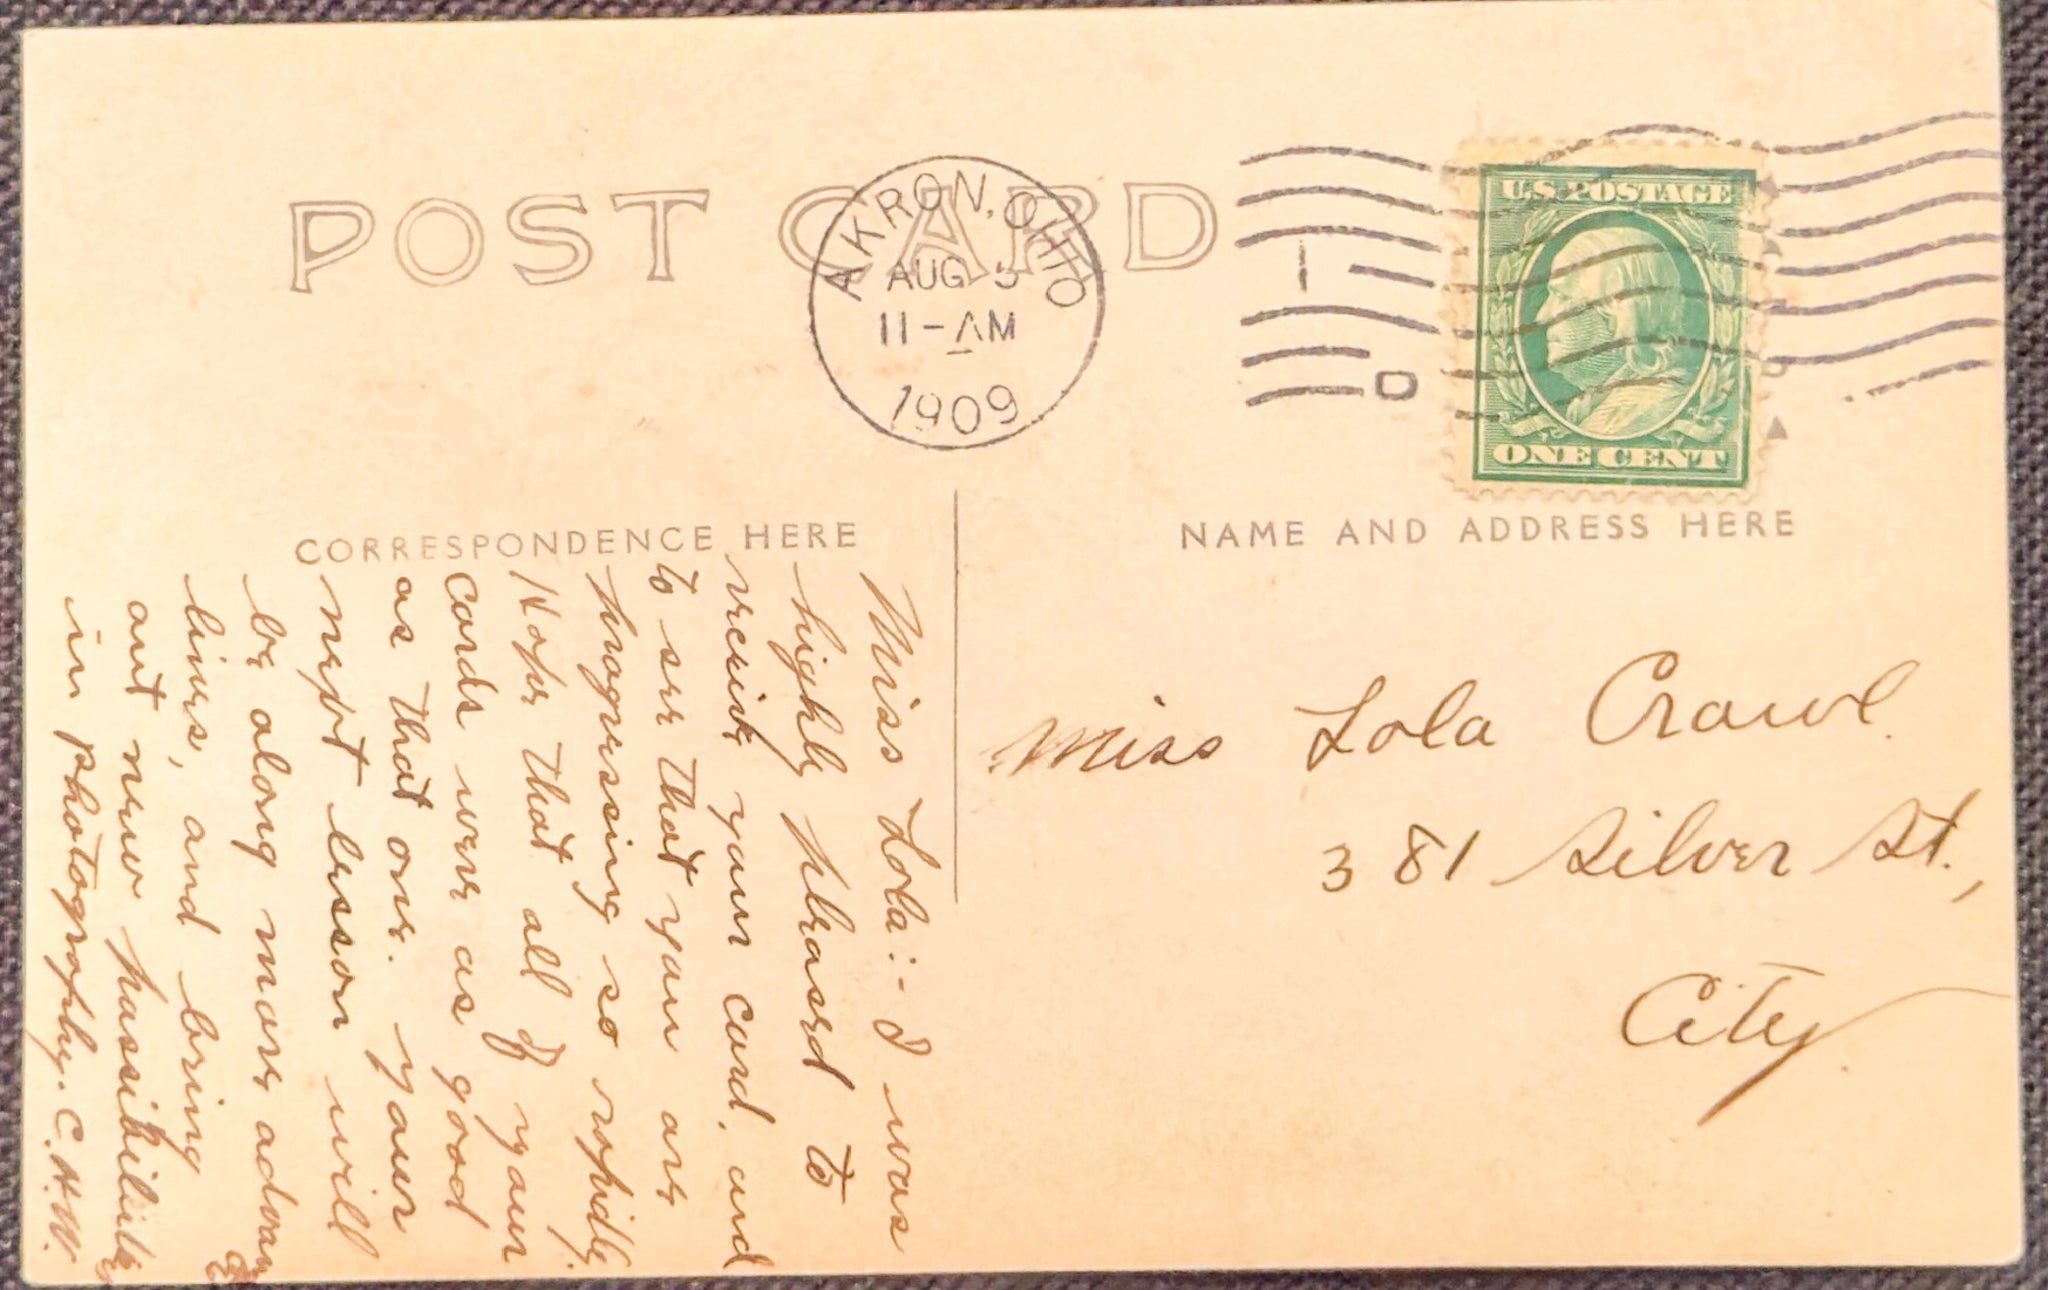 POST CARD
AKRON, OHIO
AUG 5
11-AM
1909
1
D
U.S. POSTAGE
ONE CENT
CORRESPONDENCE HERE
NAME AND ADDRESS HERE
Miss Lola:- I was
highly pleased to
receive your card, and
to see that you are
progressing so rapidly.
Hope that all of your
cards were as good
as that one. Your
next lesson will
be along more advanced
lines, and bring
out new possibilities
in photography. C.H.W.
Miss Lola Crawl
381 Silver St.,
City